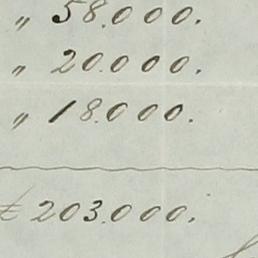 „ 58.000.
„ 20.000.
„ 18.000.
203.000.